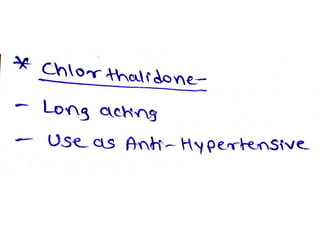 * Chlorthalidone-
- Long acting
- Use as Anti-Hypertensive